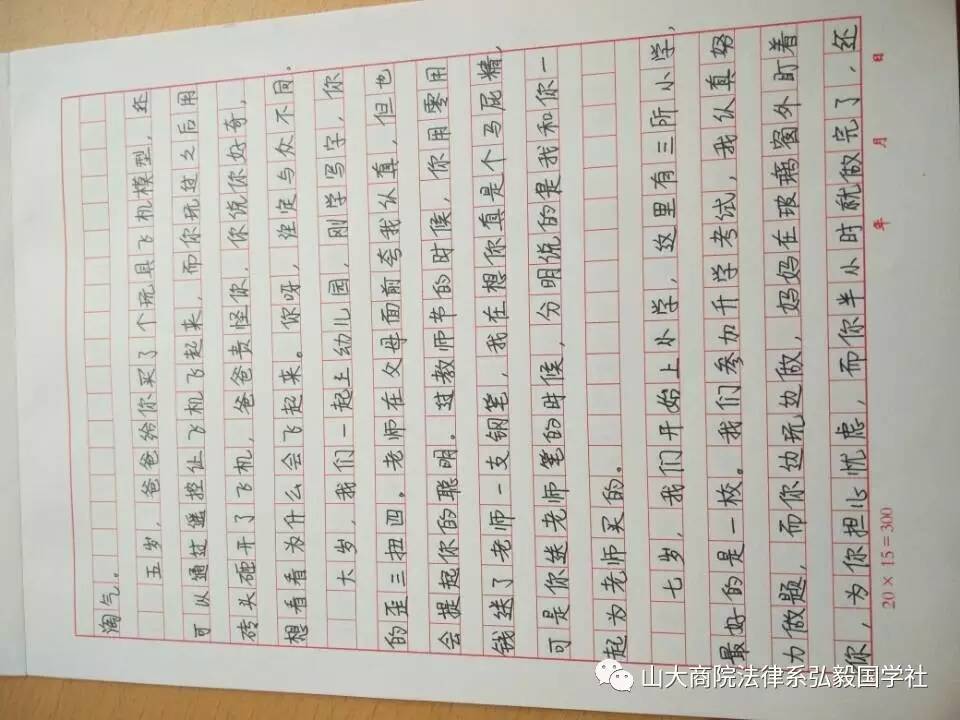 淘气。
五岁，爸爸给你买了个玩具飞机模型，还
可以通过遥控让飞机飞起来，而你玩过之后用
砖头砸开了飞机，爸爸责怪你，你说你好奇，
想看看为什么会飞起来。你呀，注定与众不同。
六岁，我们一起上幼儿园，刚学写字，你
的歪三扭四。老师在父母面前夸我认真，但也
会提起你的聪明。过教师节的时候，你用零用
钱送了老师一支钢笔，我在想你真是个马屁精，
可是你送老师笔的时候，分明说的是我和你一
起为老师买的。
七岁，我们开始上小学，这里有三所小学，
最好的是一校。我们参加升学考试，我认真努
力做题，而你边玩边做，妈妈在玻璃窗外盯着
你，为你担心忧虑，而你半小时就做完了，还
20×15=300 年 月 日
山大商院法律系弘毅国学社